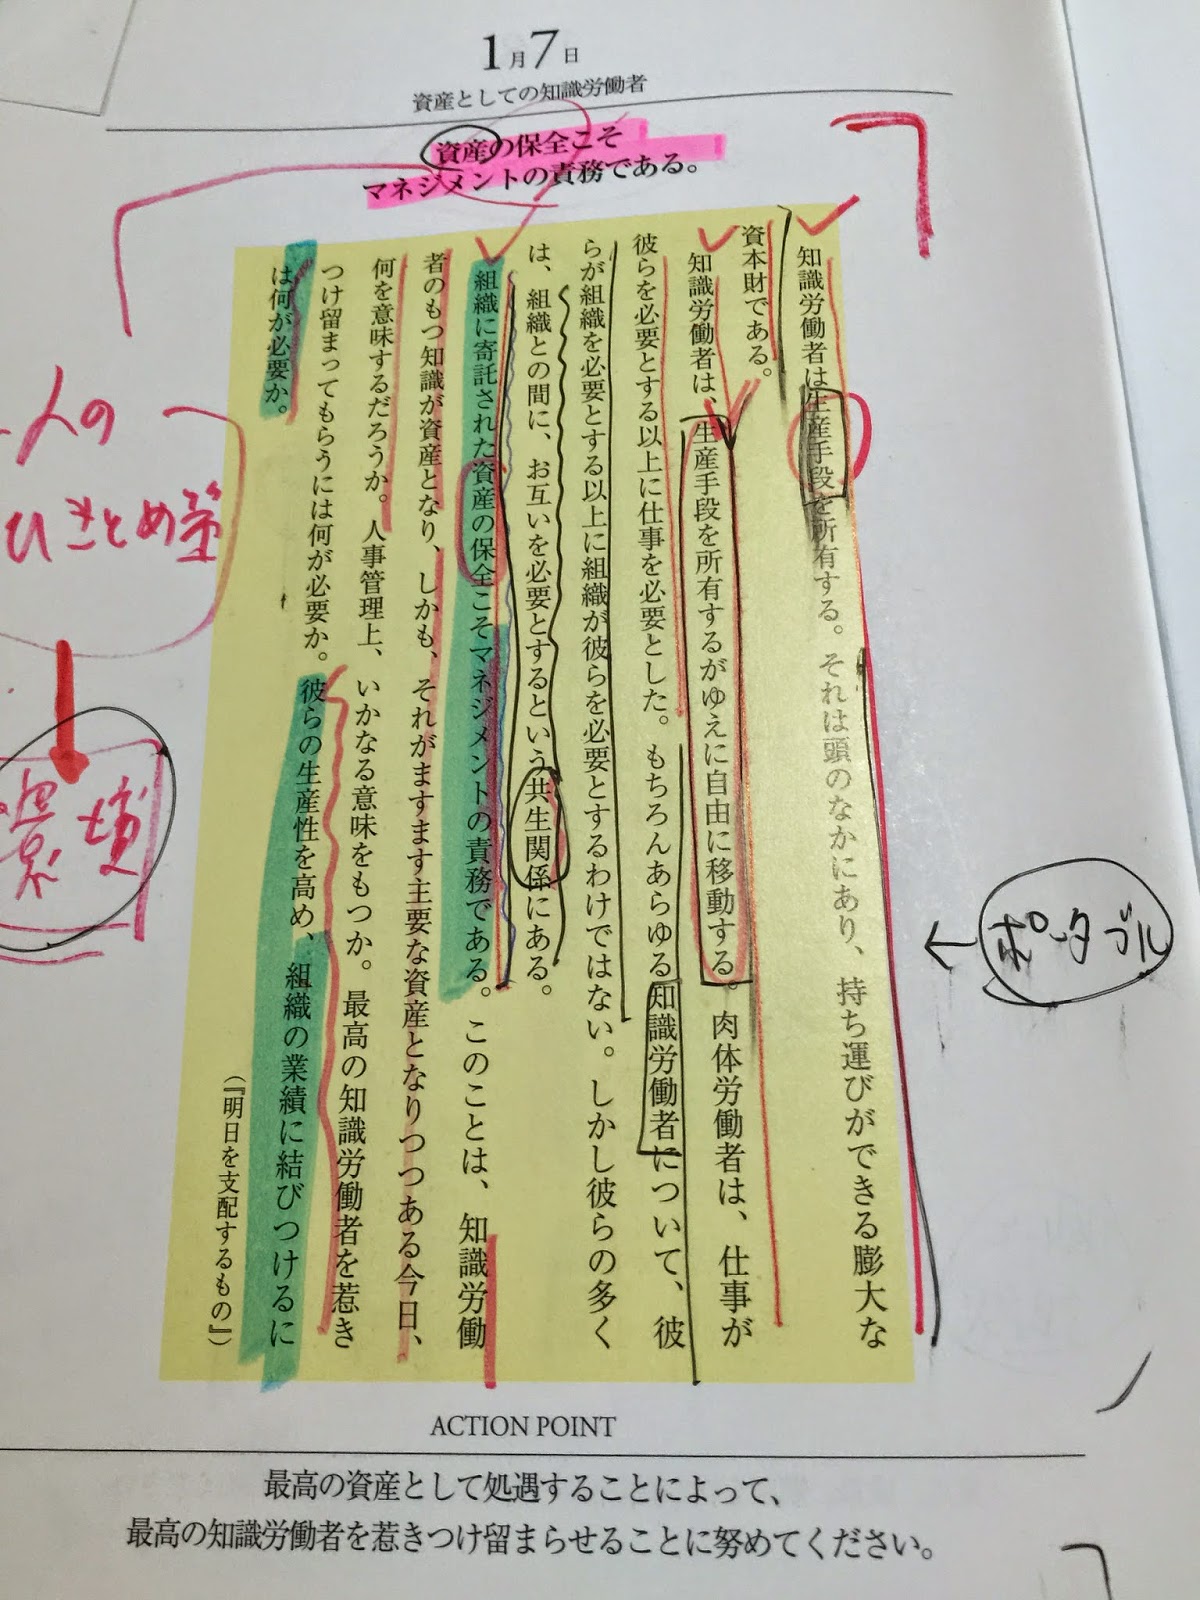 1月7日
資産としての知識労働者
資産の保全こそ
マネジメントの責務である。
知識労働者は生産手段を所有する。それは頭のなかにあり、持ち運びができる膨大な
資本財である。
知識労働者は、生産手段を所有するがゆえに自由に移動する。肉体労働者は、仕事が
彼らを必要とする以上に仕事を必要とした。もちろんあらゆる知識労働者について、彼
らが組織を必要とする以上に組織が彼らを必要とするわけではない。しかし彼らの多く
は、組織との間に、お互いを必要とするという共生関係にある。
組織に寄託された資産の保全こそマネジメントの責務である。このことは、知識労働
者のもつ知識が資産となり、しかも、それがますます主要な資産となりつつある今日、
何を意味するだろうか。人事管理上、いかなる意味をもつか。最高の知識労働者を惹き
つけ留まってもらうには何が必要か。彼らの生産性を高め、組織の業績に結びつけるに
は何が必要か。
（『明日を支配するもの』）
ポータブル
人の
ひきとめ策
ACTION POINT
最高の資産として処遇することによって、
最高の知識労働者を惹きつけ留まらせることに努めてください。